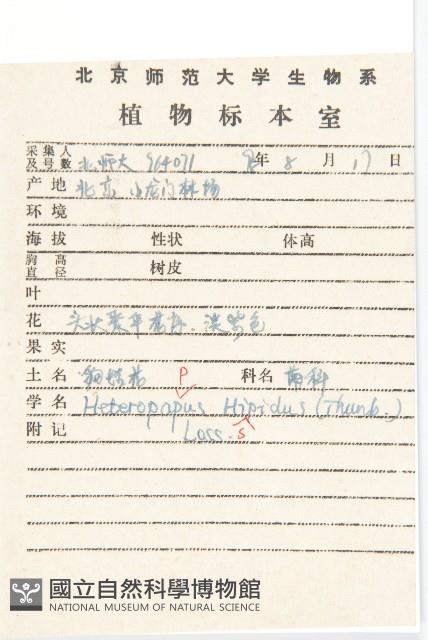 北京师范大学生物系
植物标本室
采集人及号数 北师大 964071 年 8 月 17 日
产地 北京 小龙门林场
环境
海拔 性状 体高
胸高直径 树皮
叶
花 头状花序 淡紫色
果实
土名 狗娃花 科名 菊科
P
学名 Heteropapus Hipidus (Thunb.)
附记 Less.
s
國立自然科學博物館
NATIONAL MUSEUM OF NATURAL SCIENCE